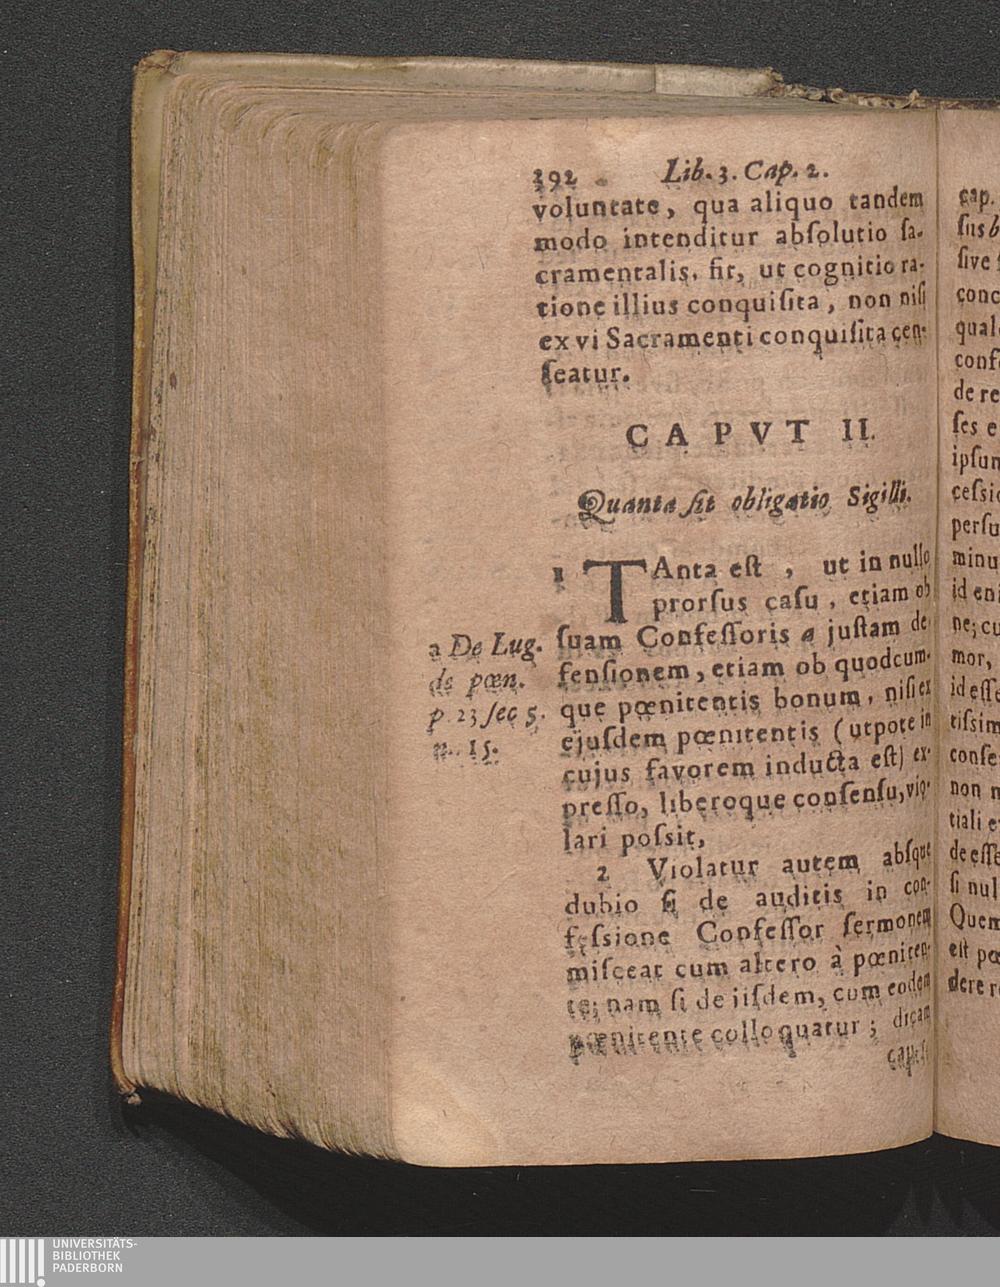 292 Lib. 3. Cap. 2.
voluntate, qua aliquo tandem
modo intenditur abſolutio ſa-
cramentalis. fit, ut cognitio ra-
tione illius conquiſita, non niſi
ex vi Sacramenti conquiſita cen-
ſeatur.
CAPVT II.
Quanta ſit obligatio Sigilli.
1 TAnta eſt, ut in nullo
prorſus caſu, etiam ob
ſuam Confeſſoris a juſtam de-
fenſionem, etiam ob quodcum-
que pœnitentis bonum, niſi ex
ejuſdem pœnitentis (utpote in
cujus favorem inducta eſt) ex-
preſſo, liberoque conſenſu, vio-
lari poſsit,
2 Violatur autem abſque
dubio ſi de auditis in con-
feſsione Confeſſor ſermonem
miſceat cum altero à pœniten-
te; nam ſi de iiſdem, cum eodem
pœnitente colloquatur; dicam
a De Lug.
de pœn.
p. 23 ſec 5.
n. 15.
cap.
ſus b
ſive
conc
qual
conf
de re
ſes e
ipſum
ceſsio
perſu
minu
id eni
ne; cu
mor,
id eſſe
tiſsim
confe
non n
tiali e
de eſſe
ſi nul
Quem
eſt pœ
dere r
UNIVERSITÄTS-
BIBLIOTHEK
PADERBORN